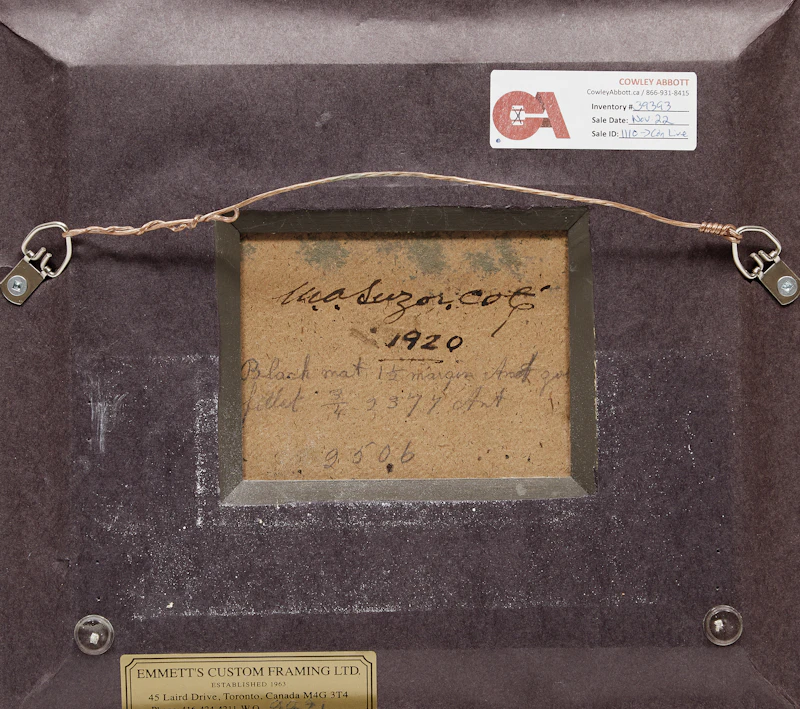 COWLEY ABBOTT
CowleyAbbott.ca / 866-931-8415
Inventory # 39393
Sale Date: Nov 22
Sale ID: 1110 → Cdn Live
CA
M.A. Suzor. Coté
1920
Black mat 1½ margin
fillet 3/4 2377 Ant
2506
EMMETT'S CUSTOM FRAMING LTD.
ESTABLISHED 1963
45 Laird Drive, Toronto, Canada M4G 3T4